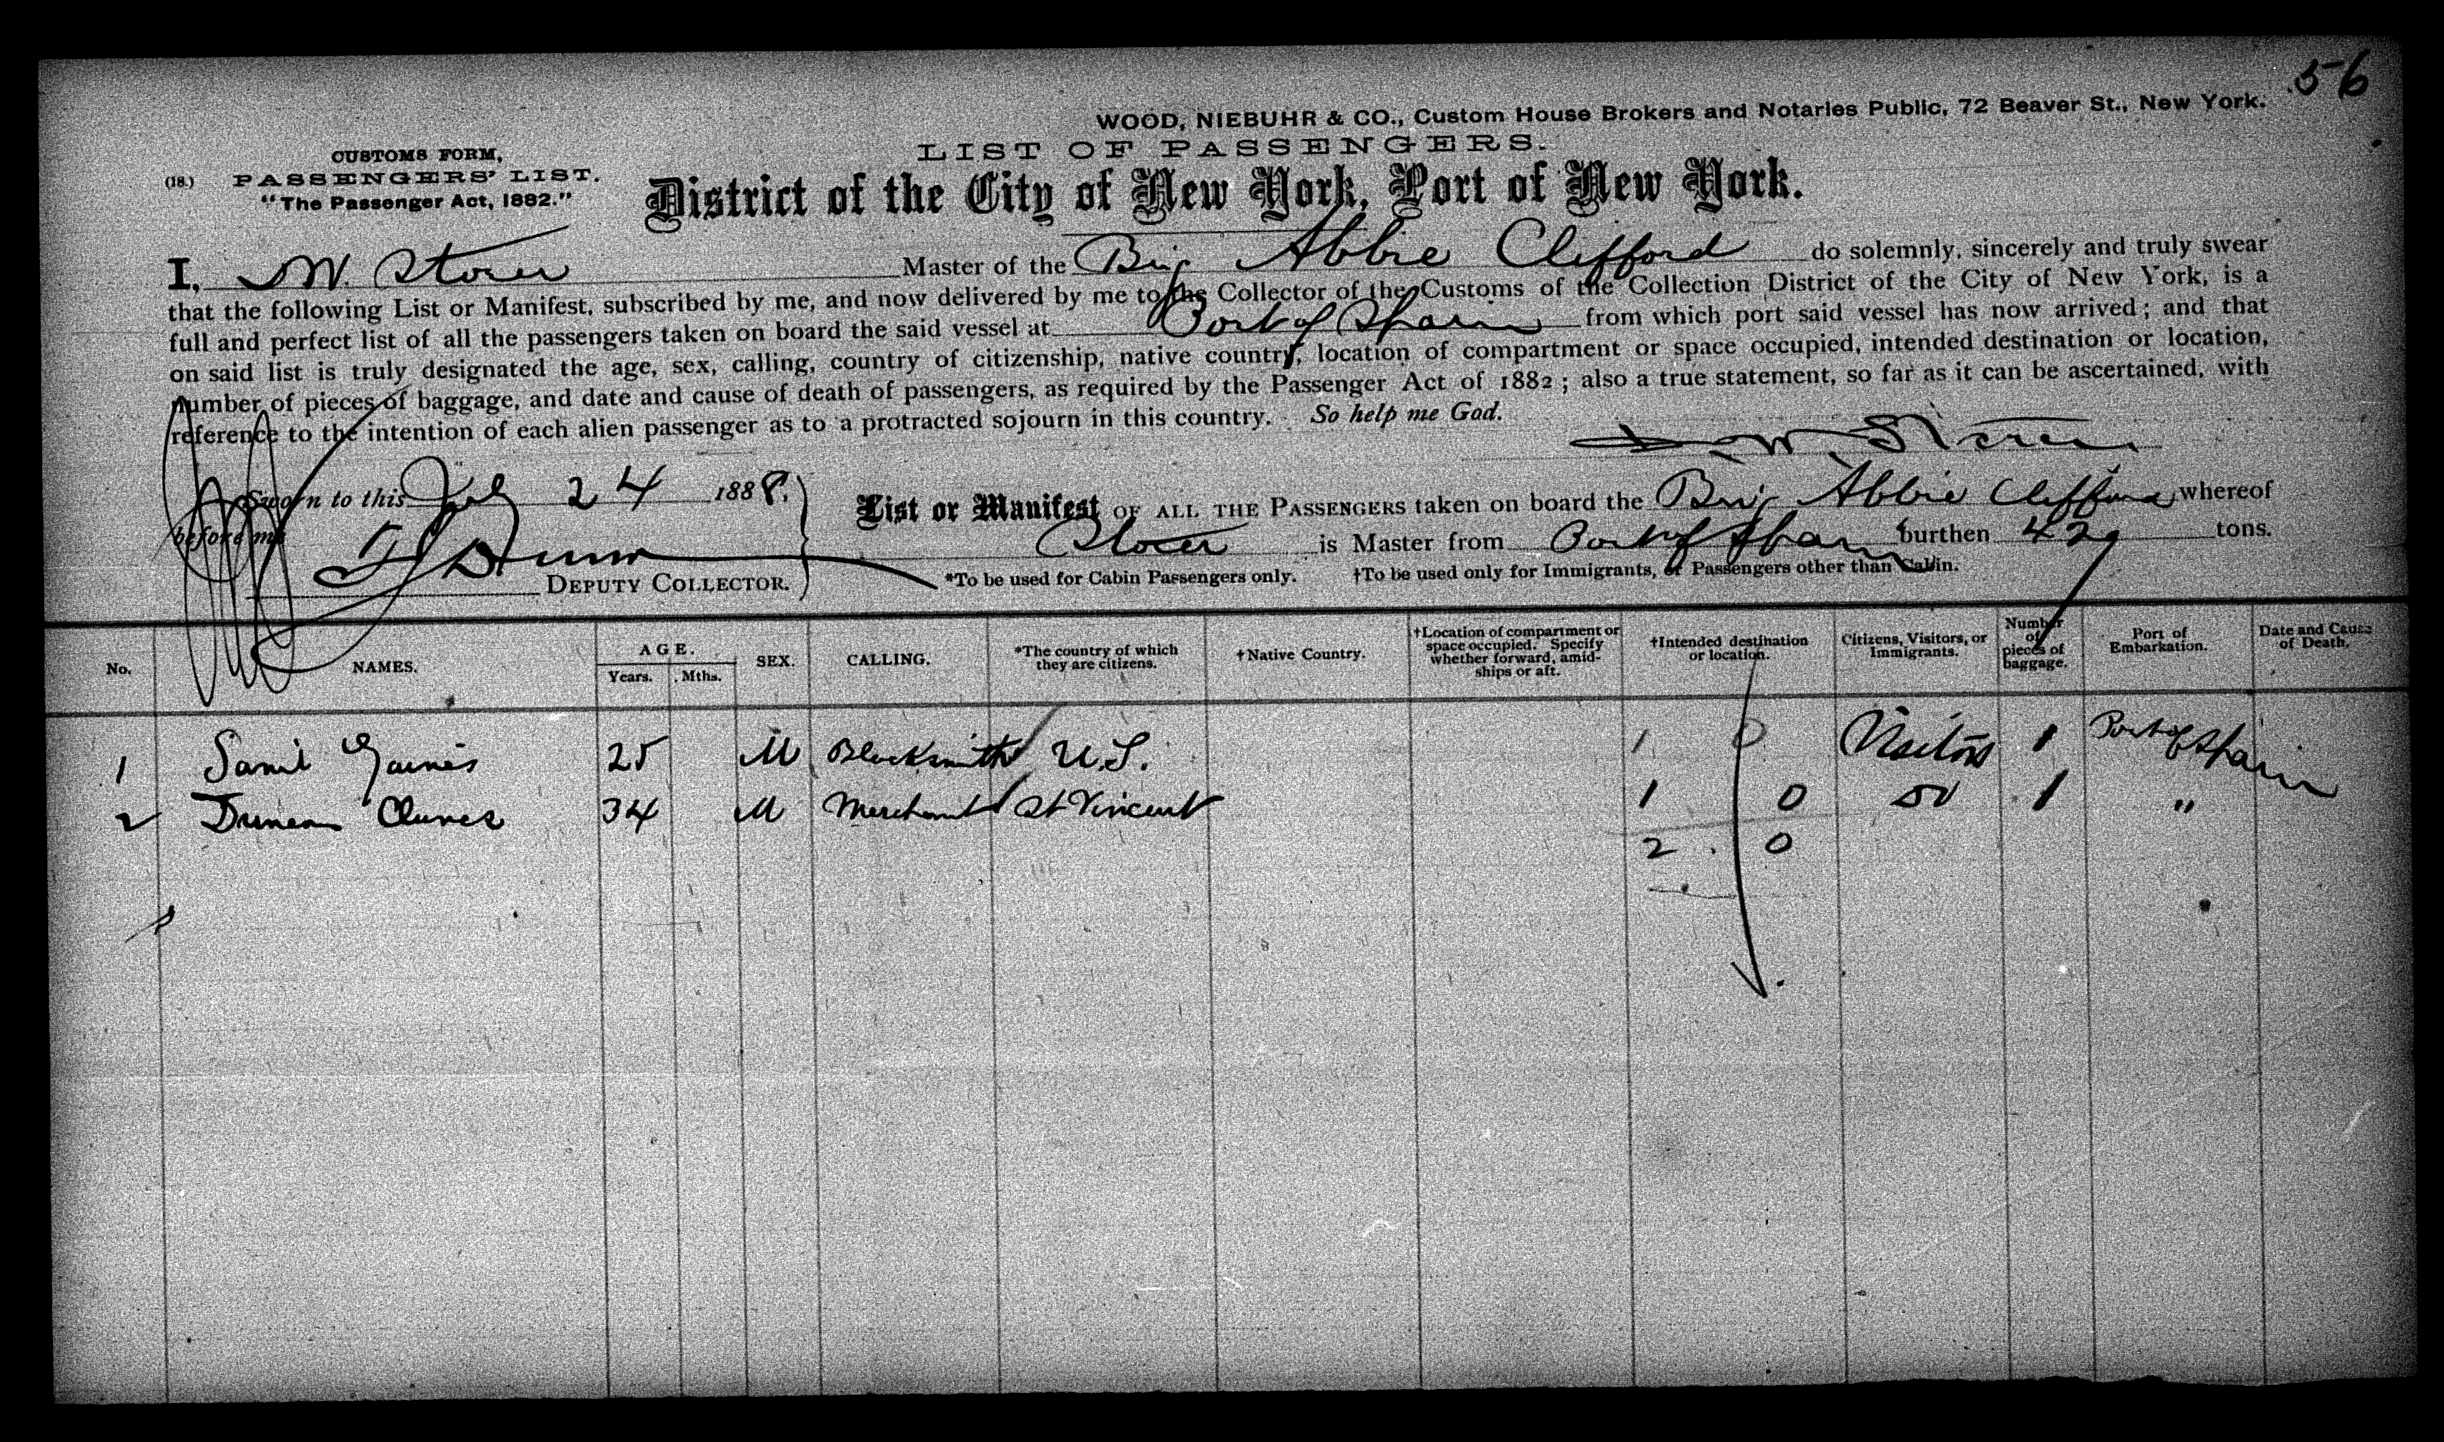 56
WOOD, NIEBUHR & CO., Custom House Brokers and Notaries Public, 72 Beaver St., New York.
CUSTOMS FORM,
LIST OF PASSENGERS.
(18.) PASSENGERS' LIST.
"The Passenger Act, 1882."
District of the City of New York, Port of New York.
I, W. Storer Master of the Brig Abbie Clifford do solemnly, sincerely and truly swear
that the following List or Manifest, subscribed by me, and now delivered by me to the Collector of the Customs of the Collection District of the City of New York, is a
full and perfect list of all the passengers taken on board the said vessel at Port of Spain from which port said vessel has now arrived; and that
on said list is truly designated the age, sex, calling, country of citizenship, native country, location of compartment or space occupied, intended destination or location,
number of pieces of baggage, and date and cause of death of passengers, as required by the Passenger Act of 1882; also a true statement, so far as it can be ascertained, with
reference to the intention of each alien passenger as to a protracted sojourn in this country. So help me God.
W Storer
Sworn to this July 24 1888.
before me
DEPUTY COLLECTOR.
List or Manifest OF ALL THE PASSENGERS taken on board the Brig Abbie Clifford whereof
Storer is Master from Port of Spain burthen 429 tons.
*To be used for Cabin Passengers only. †To be used only for Immigrants, or Passengers other than Cabin.
No. NAMES. AGE. Years. Mths. SEX. CALLING. *The country of which they are citizens. †Native Country. †Location of compartment or space occupied. Specify whether forward, amidships or aft. †Intended destination or location. Citizens, Visitors, or Immigrants. Number of pieces of baggage. Port of Embarkation. Date and Cause of Death.
1 Saml Gaines 25 M Blacksmith U.S. 1 0 Visitors 1 Port of Spain
2 Duncan 34 M Merchant St Vincent 1 0 1 "
2 . 0